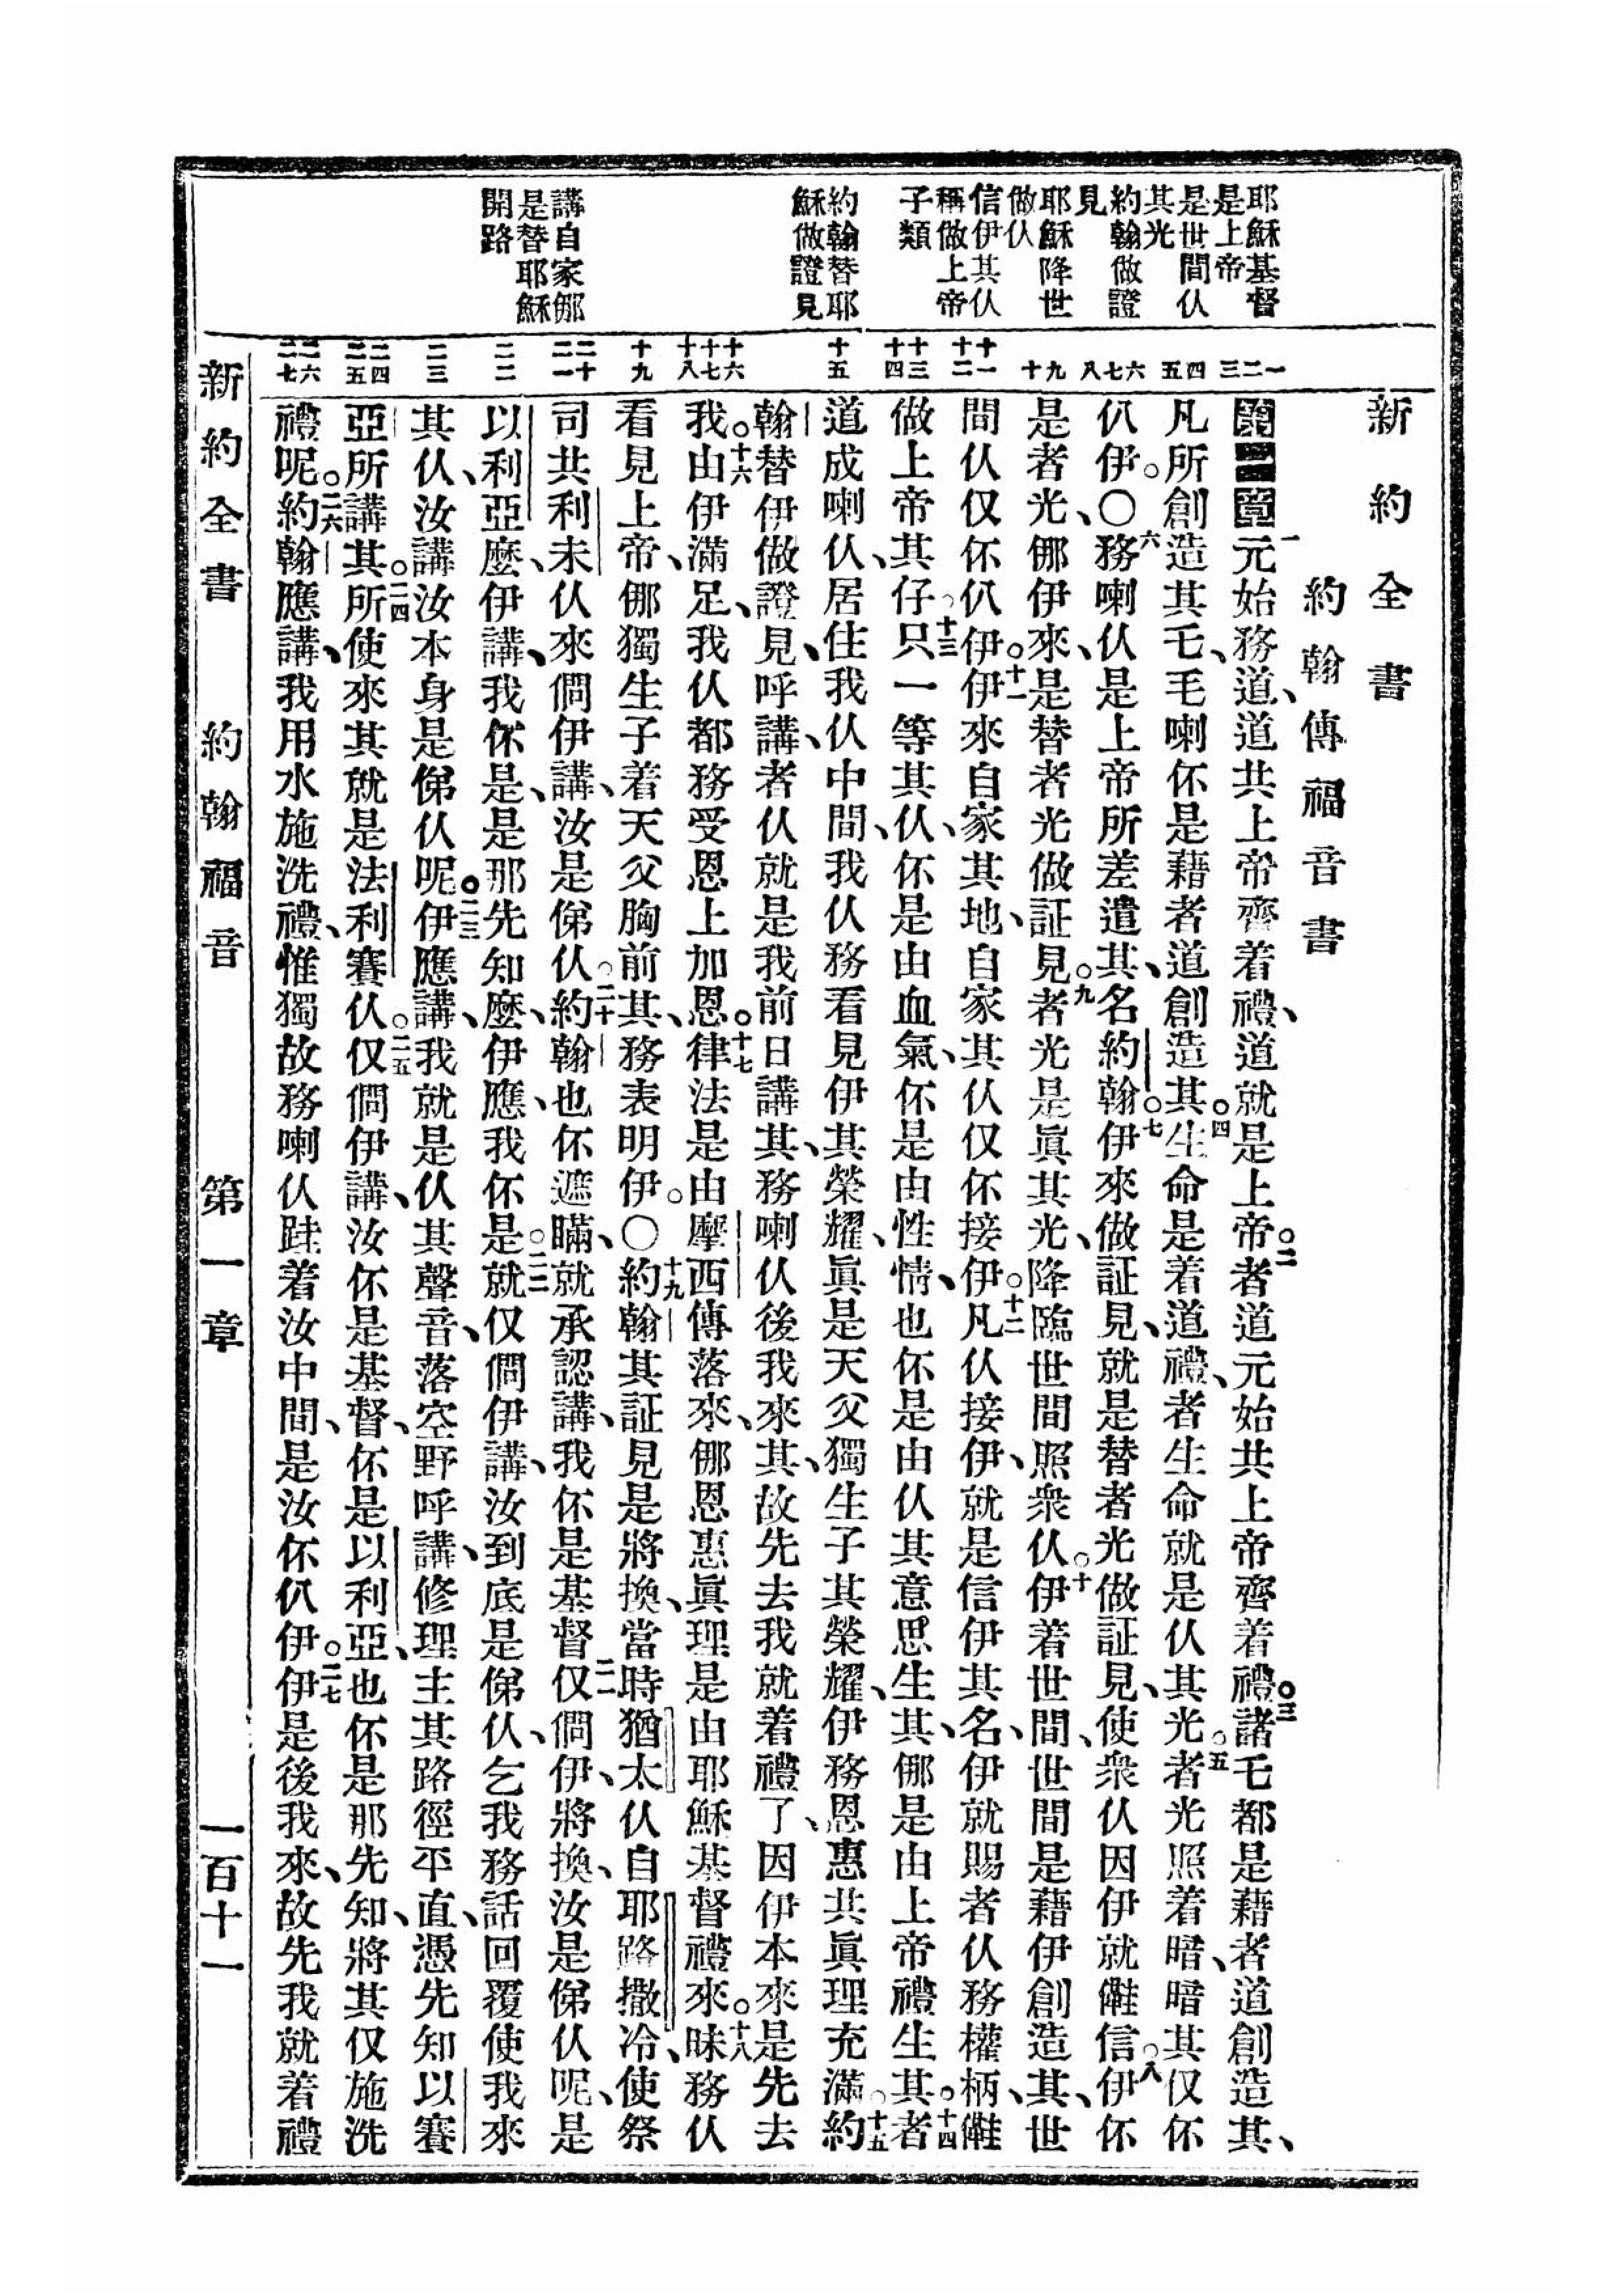 新約全書
約翰傳福音書
耶穌基督
是上帝
是世間仏
其光
約翰做證
見
耶穌降世
做仏
信伊其仏
稱做上帝
子類
約翰替耶
穌做證見
講自家㑚
是替耶穌
開路
第一章一元始務道、道共上帝齊着禮、道就是上帝。二者道元始共上帝齊着禮。三諸乇都是藉者道創造其、
凡所創造其乇、乇喇伓是藉者道創造其。四其生命是着道禮、者生命就是仏其光。五者光照着暗、暗其仅伓
仈伊。〇六務喇仏是上帝所差遣其、名約翰。七伊來做証見、就是替者光做証見、使衆仏因伊就信伊。八伓
是者光、㑚伊來、是替者光做証見。九者光是眞其光、降臨世間照衆仏。十伊着世間、世間是藉伊創造其、世
間仏仅伓仈伊。十一伊來自家其地、自家其仏仅伓接伊。十二凡仏接伊、就是信伊其名、伊就賜者仏務權柄、
做上帝其仔。十三只一等其仏、伓是由血氣、伓是由性情、也伓是由仏其意思生其、㑚是由上帝禮生其。十四者
道成喇仏、居住我仏中間、我仏務看見伊其榮耀、眞是天父獨生子其榮耀、伊務恩惠共眞理充滿。十五約
翰替伊做證見、呼講、者仏就是我前日講其、務喇仏後我來其、故先去我就着禮了、因伊本來是先去
我。十六由伊滿足、我仏都務受恩上加恩。十七律法是由摩西傳落來、㑚恩惠眞理是由耶穌基督禮來。十八昧務仏
看見上帝、㑚獨生子着天父胸前其、務表明伊。〇十九約翰其証見是將換、當時猶太仏自耶路撒冷、使祭
司共利未仏來僩伊講、汝是俤仏。二十約翰也伓遮瞞、就承認講、我伓是基督二一仅僩伊、將換、汝是俤仏呢、是
以利亞麽、伊講、我伓是、是那先知麽、伊應、我伓是。二二就仅僩伊講、汝到底是俤仏、乞我務話回覆使我來
其仏、汝講汝本身是俤仏呢。二三伊應講、我就是仏其聲音、落空野呼講、修理主其路徑平直、憑先知以賽
亞所講其。二四所使來其就是法利賽仏。二五仅僩伊講、汝伓是基督、伓是以利亞、也伓是那先知、將其仅施洗
禮呢。二六約翰應講、我用水施洗禮、惟獨故務喇仏跬着汝中間、是汝伓仈伊。二七伊是後我來、故先我就着禮
新約全書　約翰福音　第一章　一百十一